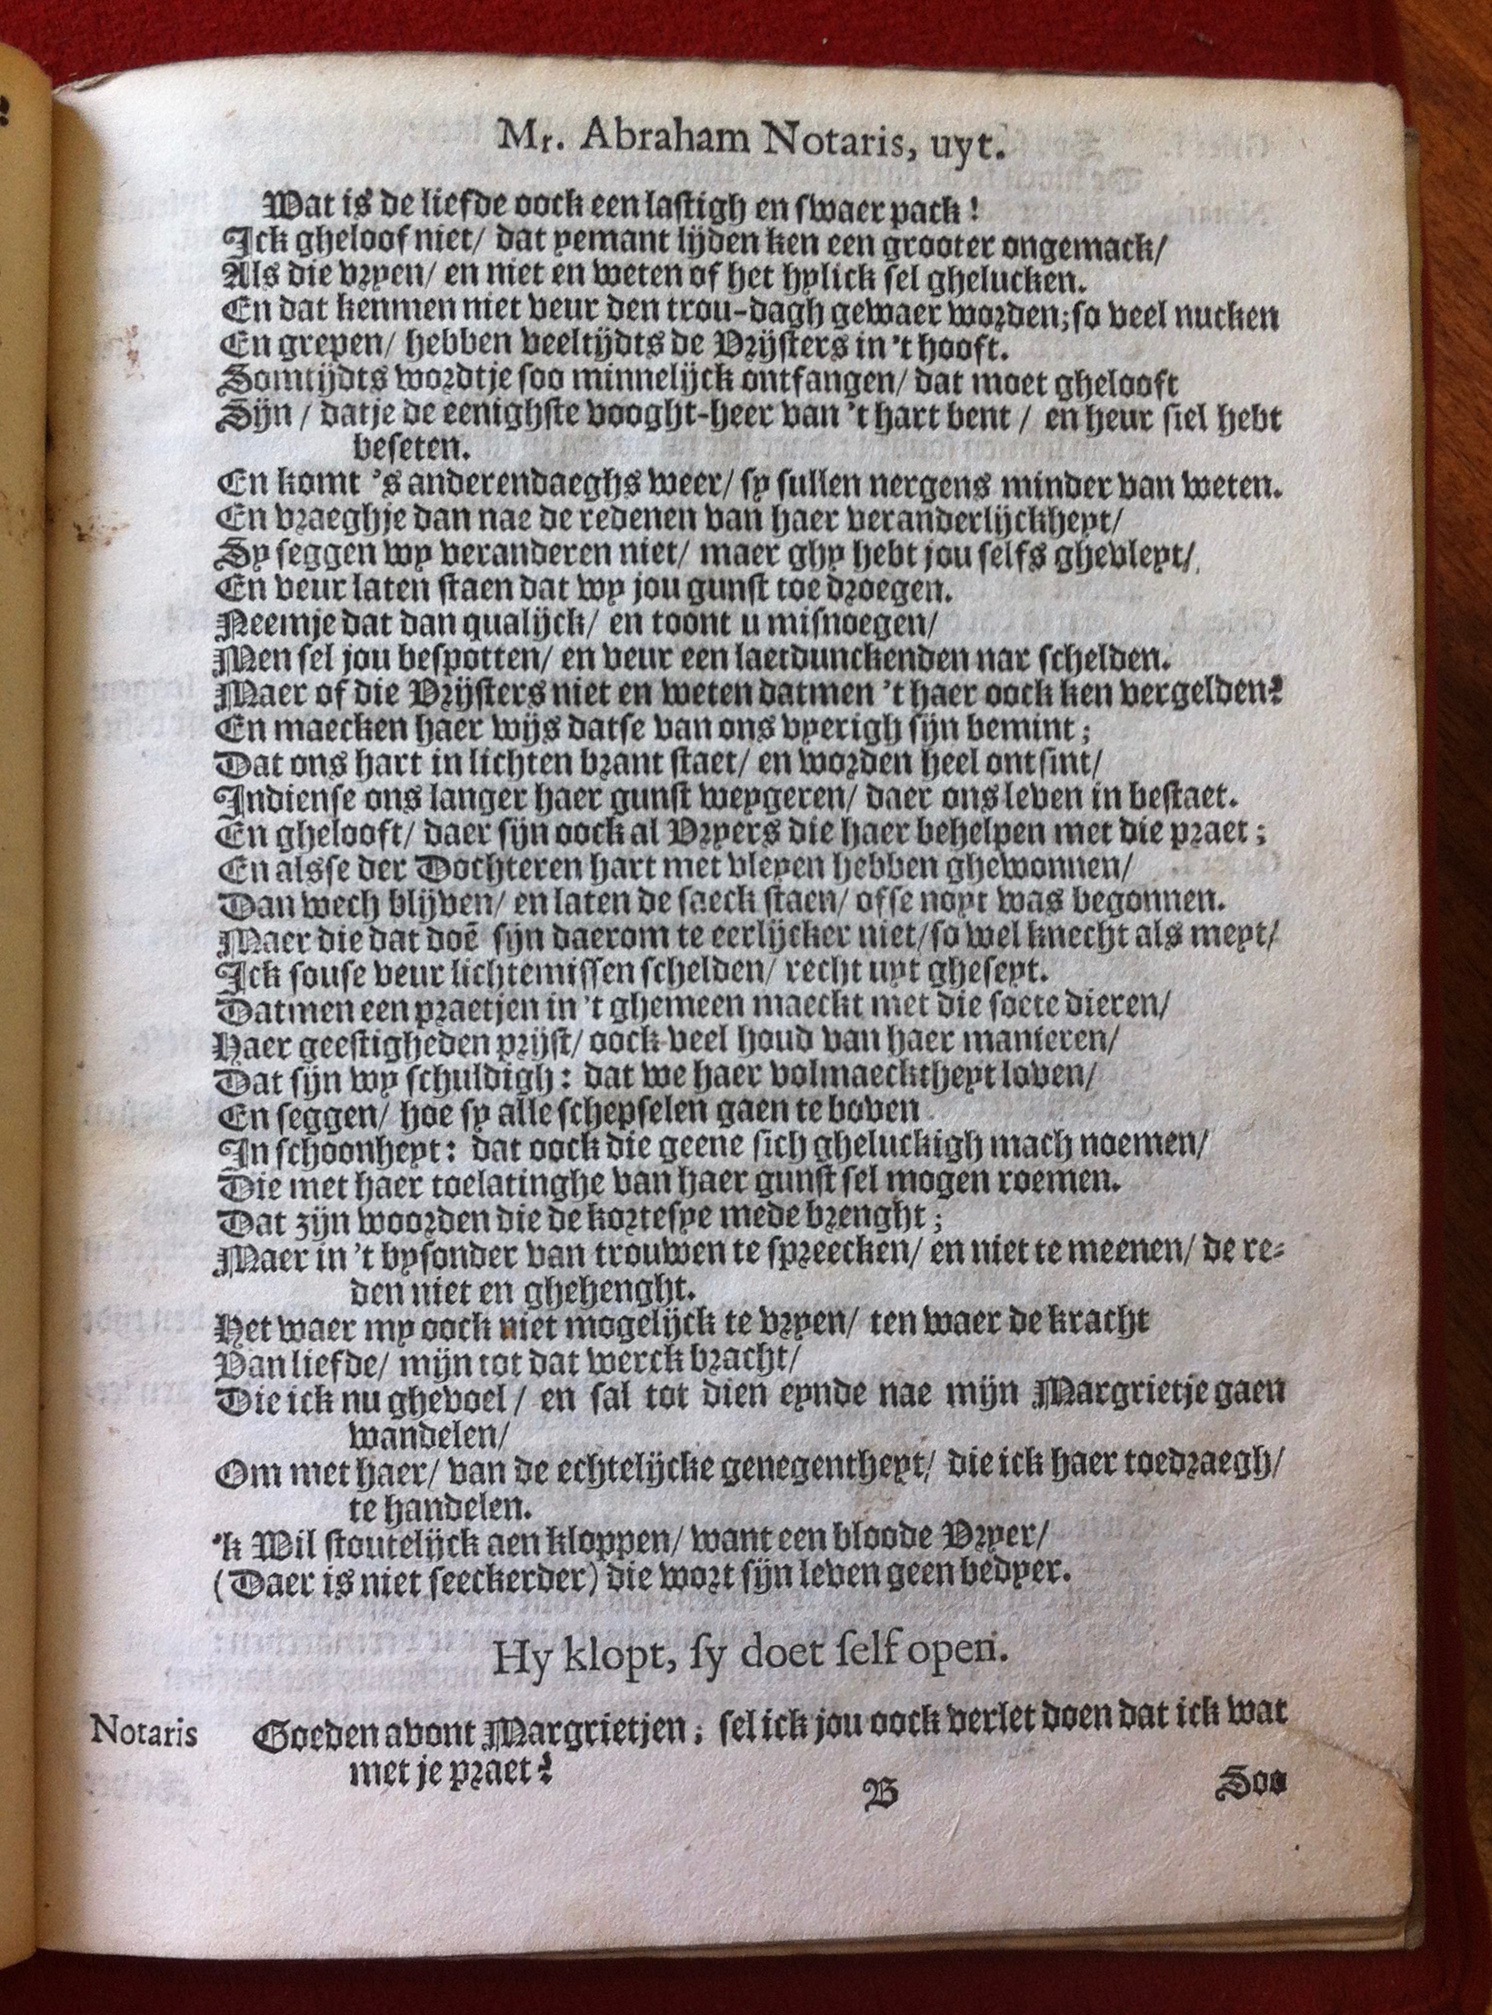 Mr. Abraham Notaris, uyt.
Wat is de liefde oock een lastigh en swaer pack!
Ick gheloof niet/ dat yemant lijden ken een grooter ongemack/
Als die vryen/ en niet en weten of het hylick sel ghelucken.
En dat kenmen niet veur den trou-dagh gewaer worden; so veel nucken
En grepen/ hebben veeltijdts de Vrijsters in 't hooft.
Somtijdts wordtje soo minnelijck ontfangen/ dat moet ghelooft
Sijn/ datje de eenighste vooght-heer van 't hart bent/ en heur siel hebt
beseten.
En komt 's anderendaeghs weer/ sy sullen nergens minder van weten.
En vraeghje dan nae de redenen van haer veranderlijckheyt/
Sy seggen wy veranderen niet/ maer ghy hebt jou selfs ghevleyt/
En veur laten staen dat wy jou gunst toe droegen.
Neemje dat dan qualijck/ en toont u misnoegen/
Men sel jou bespotten/ en veur een laetdunckenden nar schelden.
Maer of die Vrijsters niet en weten datmen 't haer oock ken vergelden?
En maecken haer wijs datse van ons vyerigh sijn bemint;
Dat ons hart in lichten brant staet/ en worden heel ontsint/
Indiense ons langer haer gunst weygeren/ daer ons leven in bestaet.
En ghelooft/ daer sijn oock al Vryers die haer behelpen met die praet;
En alsse der Dochteren hart met vleyen hebben ghewonnen/
Dan wech blijven/ en laten de saeck staen/ ofse noyt was begonnen.
Maer die dat doē sijn daerom te eerlijcker niet/ so wel knecht als meyt/
Ick souse veur lichtemissen schelden/ recht uyt gheseyt.
Datmen een praetjen in 't ghemeen maeckt met die soete dieren/
Haer geestigheden prijst/ oock veel houd van haer manieren/
Dat sijn wy schuldigh: dat we haer volmaecktheyt loven/
En seggen/ hoe sy alle schepselen gaen te boven
In schoonheyt: dat oock die geene sich gheluckigh mach noemen/
Die met haer toelatinghe van haer gunst sel mogen roemen.
Dat zijn woorden die de kortesye mede brenght;
Maer in 't bysonder van trouwen te spreecken/ en niet te meenen/ de re-
den niet en ghehenght.
Het waer my oock niet mogelijck te vryen/ ten waer de kracht
Van liefde/ mijn tot dat werck bracht/
Die ick nu ghevoel/ en sal tot dien eynde nae mijn Margrietje gaen
wandelen/
Om met haer/ van de echtelijcke genegentheyt/ die ick haer toedraegh/
te handelen.
'k Wil stoutelijck aen kloppen/ want een bloode Vryer/
(Daer is niet seeckerder) die wort sijn leven geen bedyer.
Hy klopt, sy doet self open.
Notaris Goeden avont Margrietjen; sel ick jou oock verlet doen dat ick wat
met je praet?
B Soo